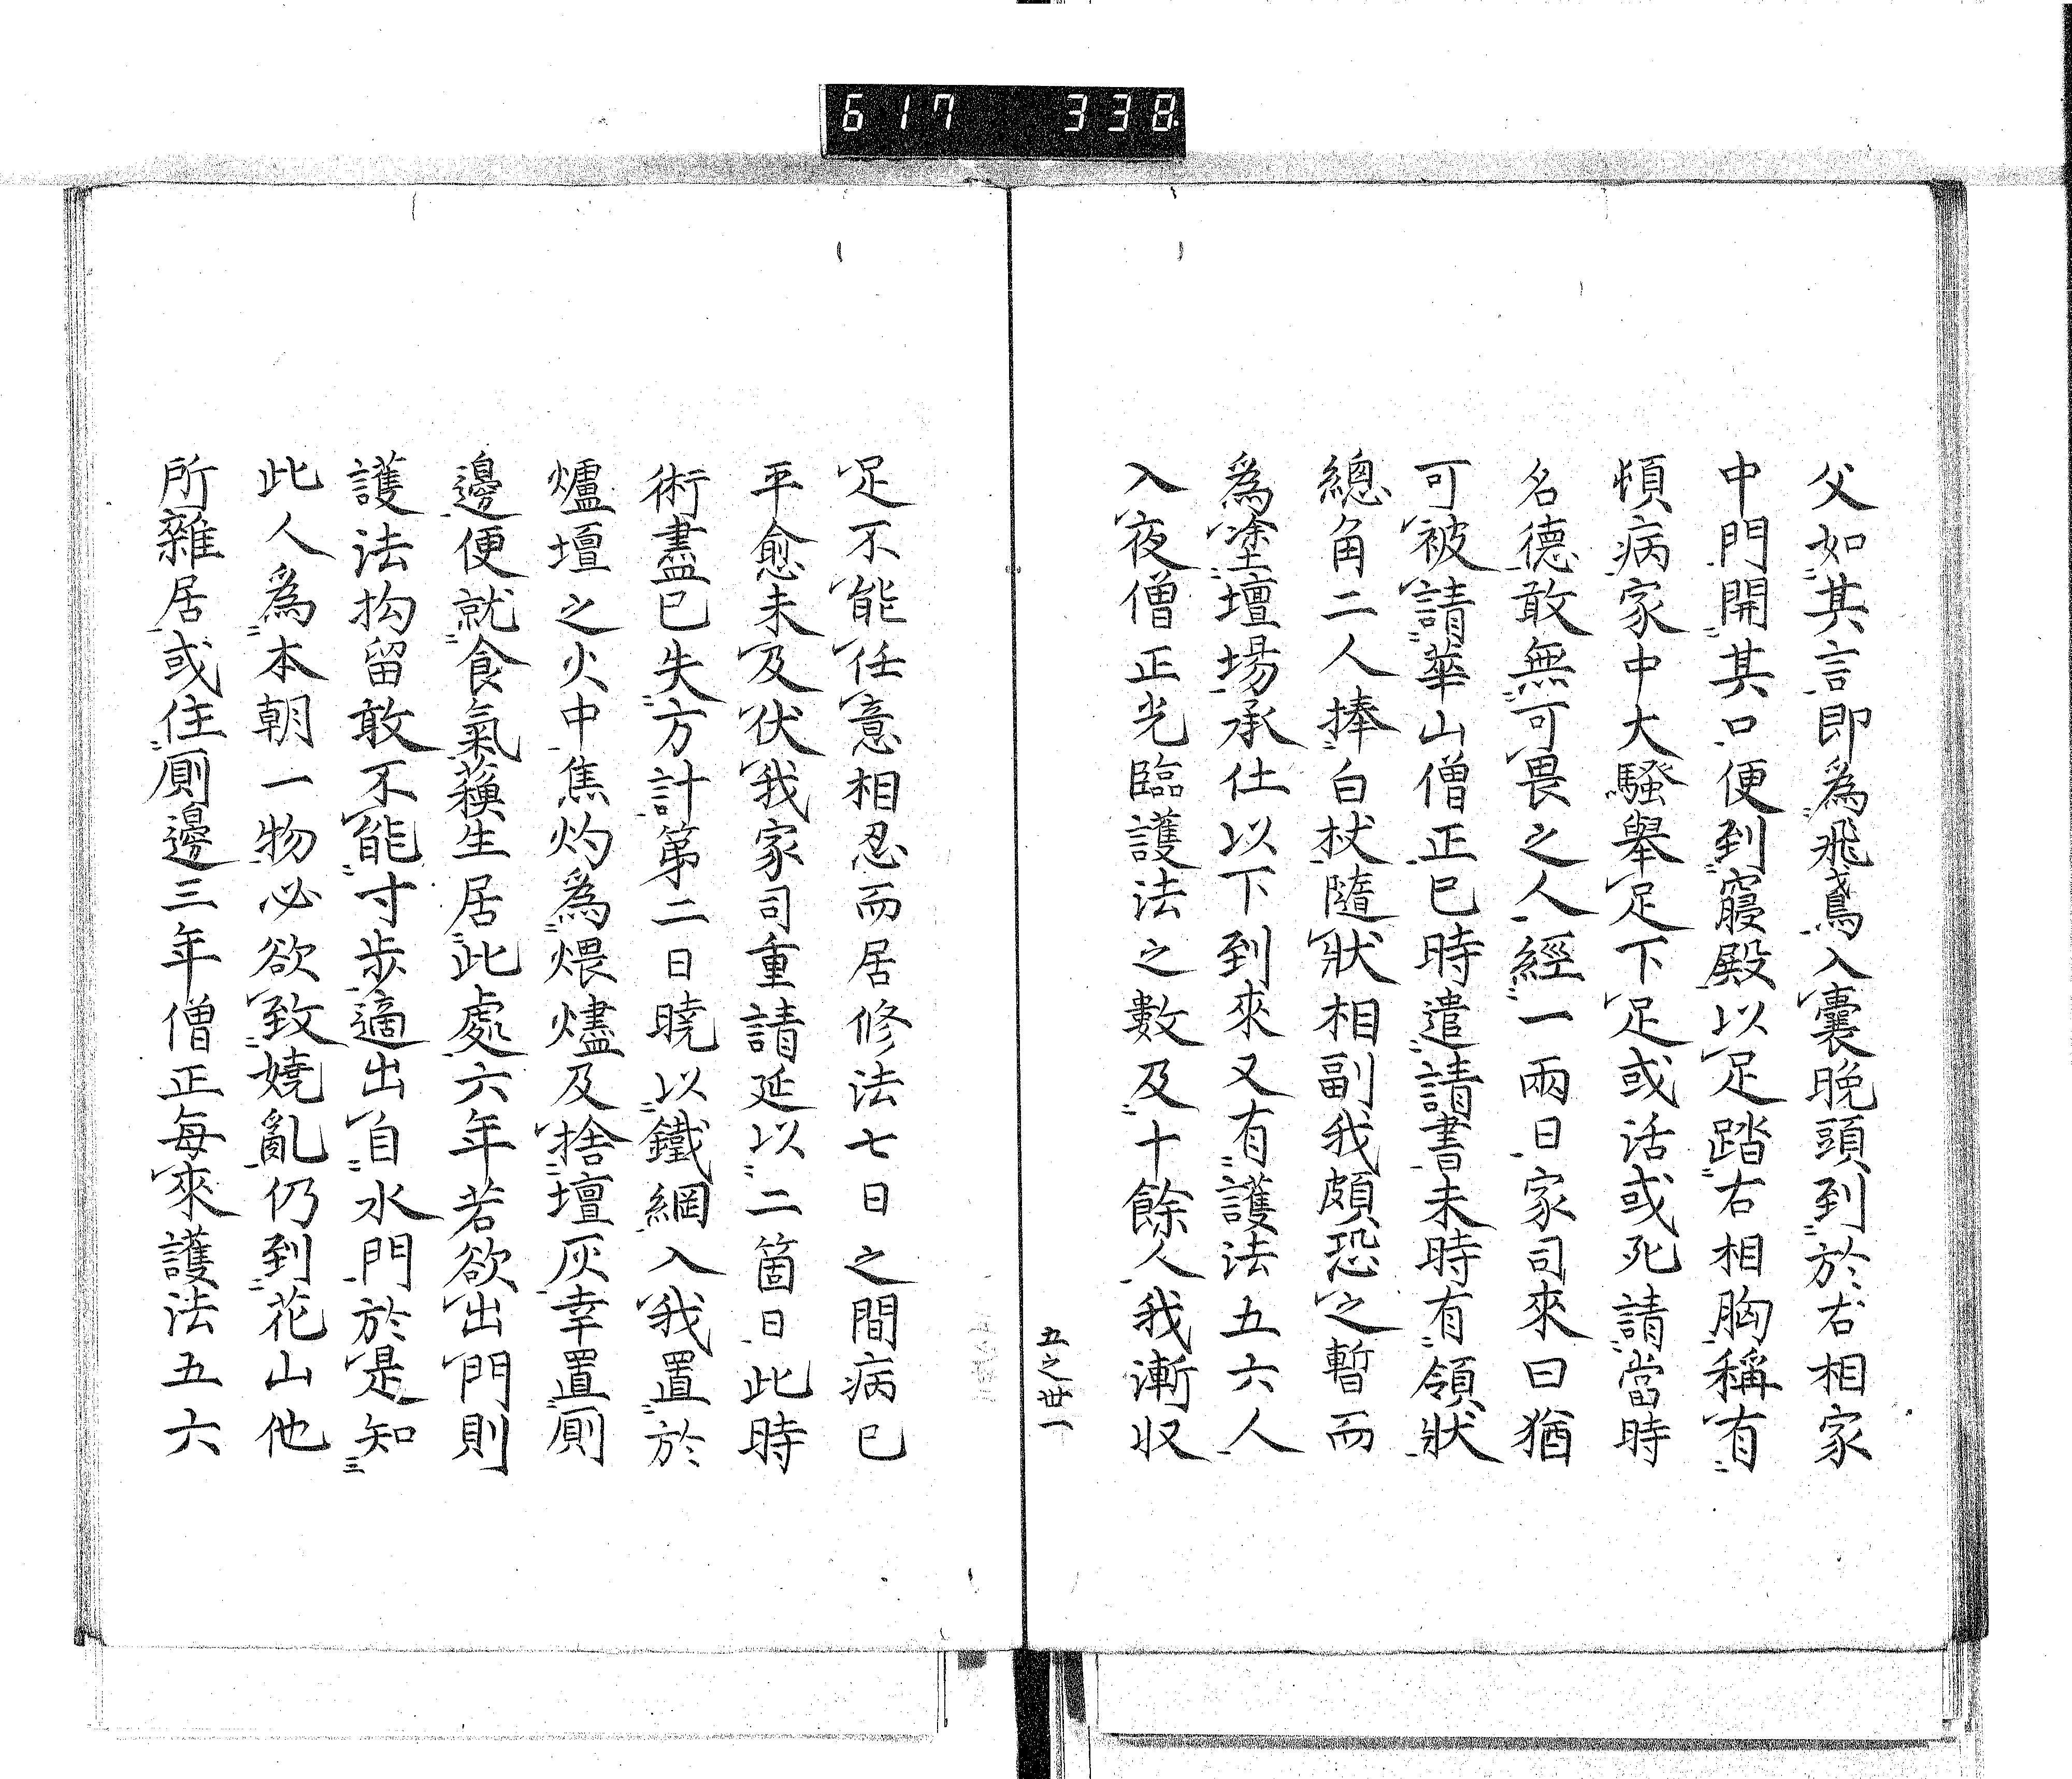 617 338
父如其言即為飛鳶入囊晚頭到於右相家
中門開其口便到寢殿以足踏右相胸稱有
煩病家中大騷舉足下足或活或死請當時
名德敢無可畏之人經一兩日家司來曰猶
可被請華山僧正已時遣請書未時有領狀
總角二人捧白杖隨狀相副我頗恐之暫而
為塗壇場承仕以下到來又有護法五六人
入夜僧正光臨護法之數及十餘人我漸收
五之丗一
足不能任意相忍而居修法七日之間病已
平愈未及伏我家司重請延以二箇日此時
術盡已失方計第二日曉以鐵網入我置於
爐壇之火中焦灼為煨燼及捨壇灰幸置厠
邊便就食氣蘓生居此處六年若欲出門則
護法拘留敢不能寸步適出自水門於是知
此人為本朝一物必欲致嬈亂仍到花山他
所雜居或住厠邊三年僧正每來護法五六